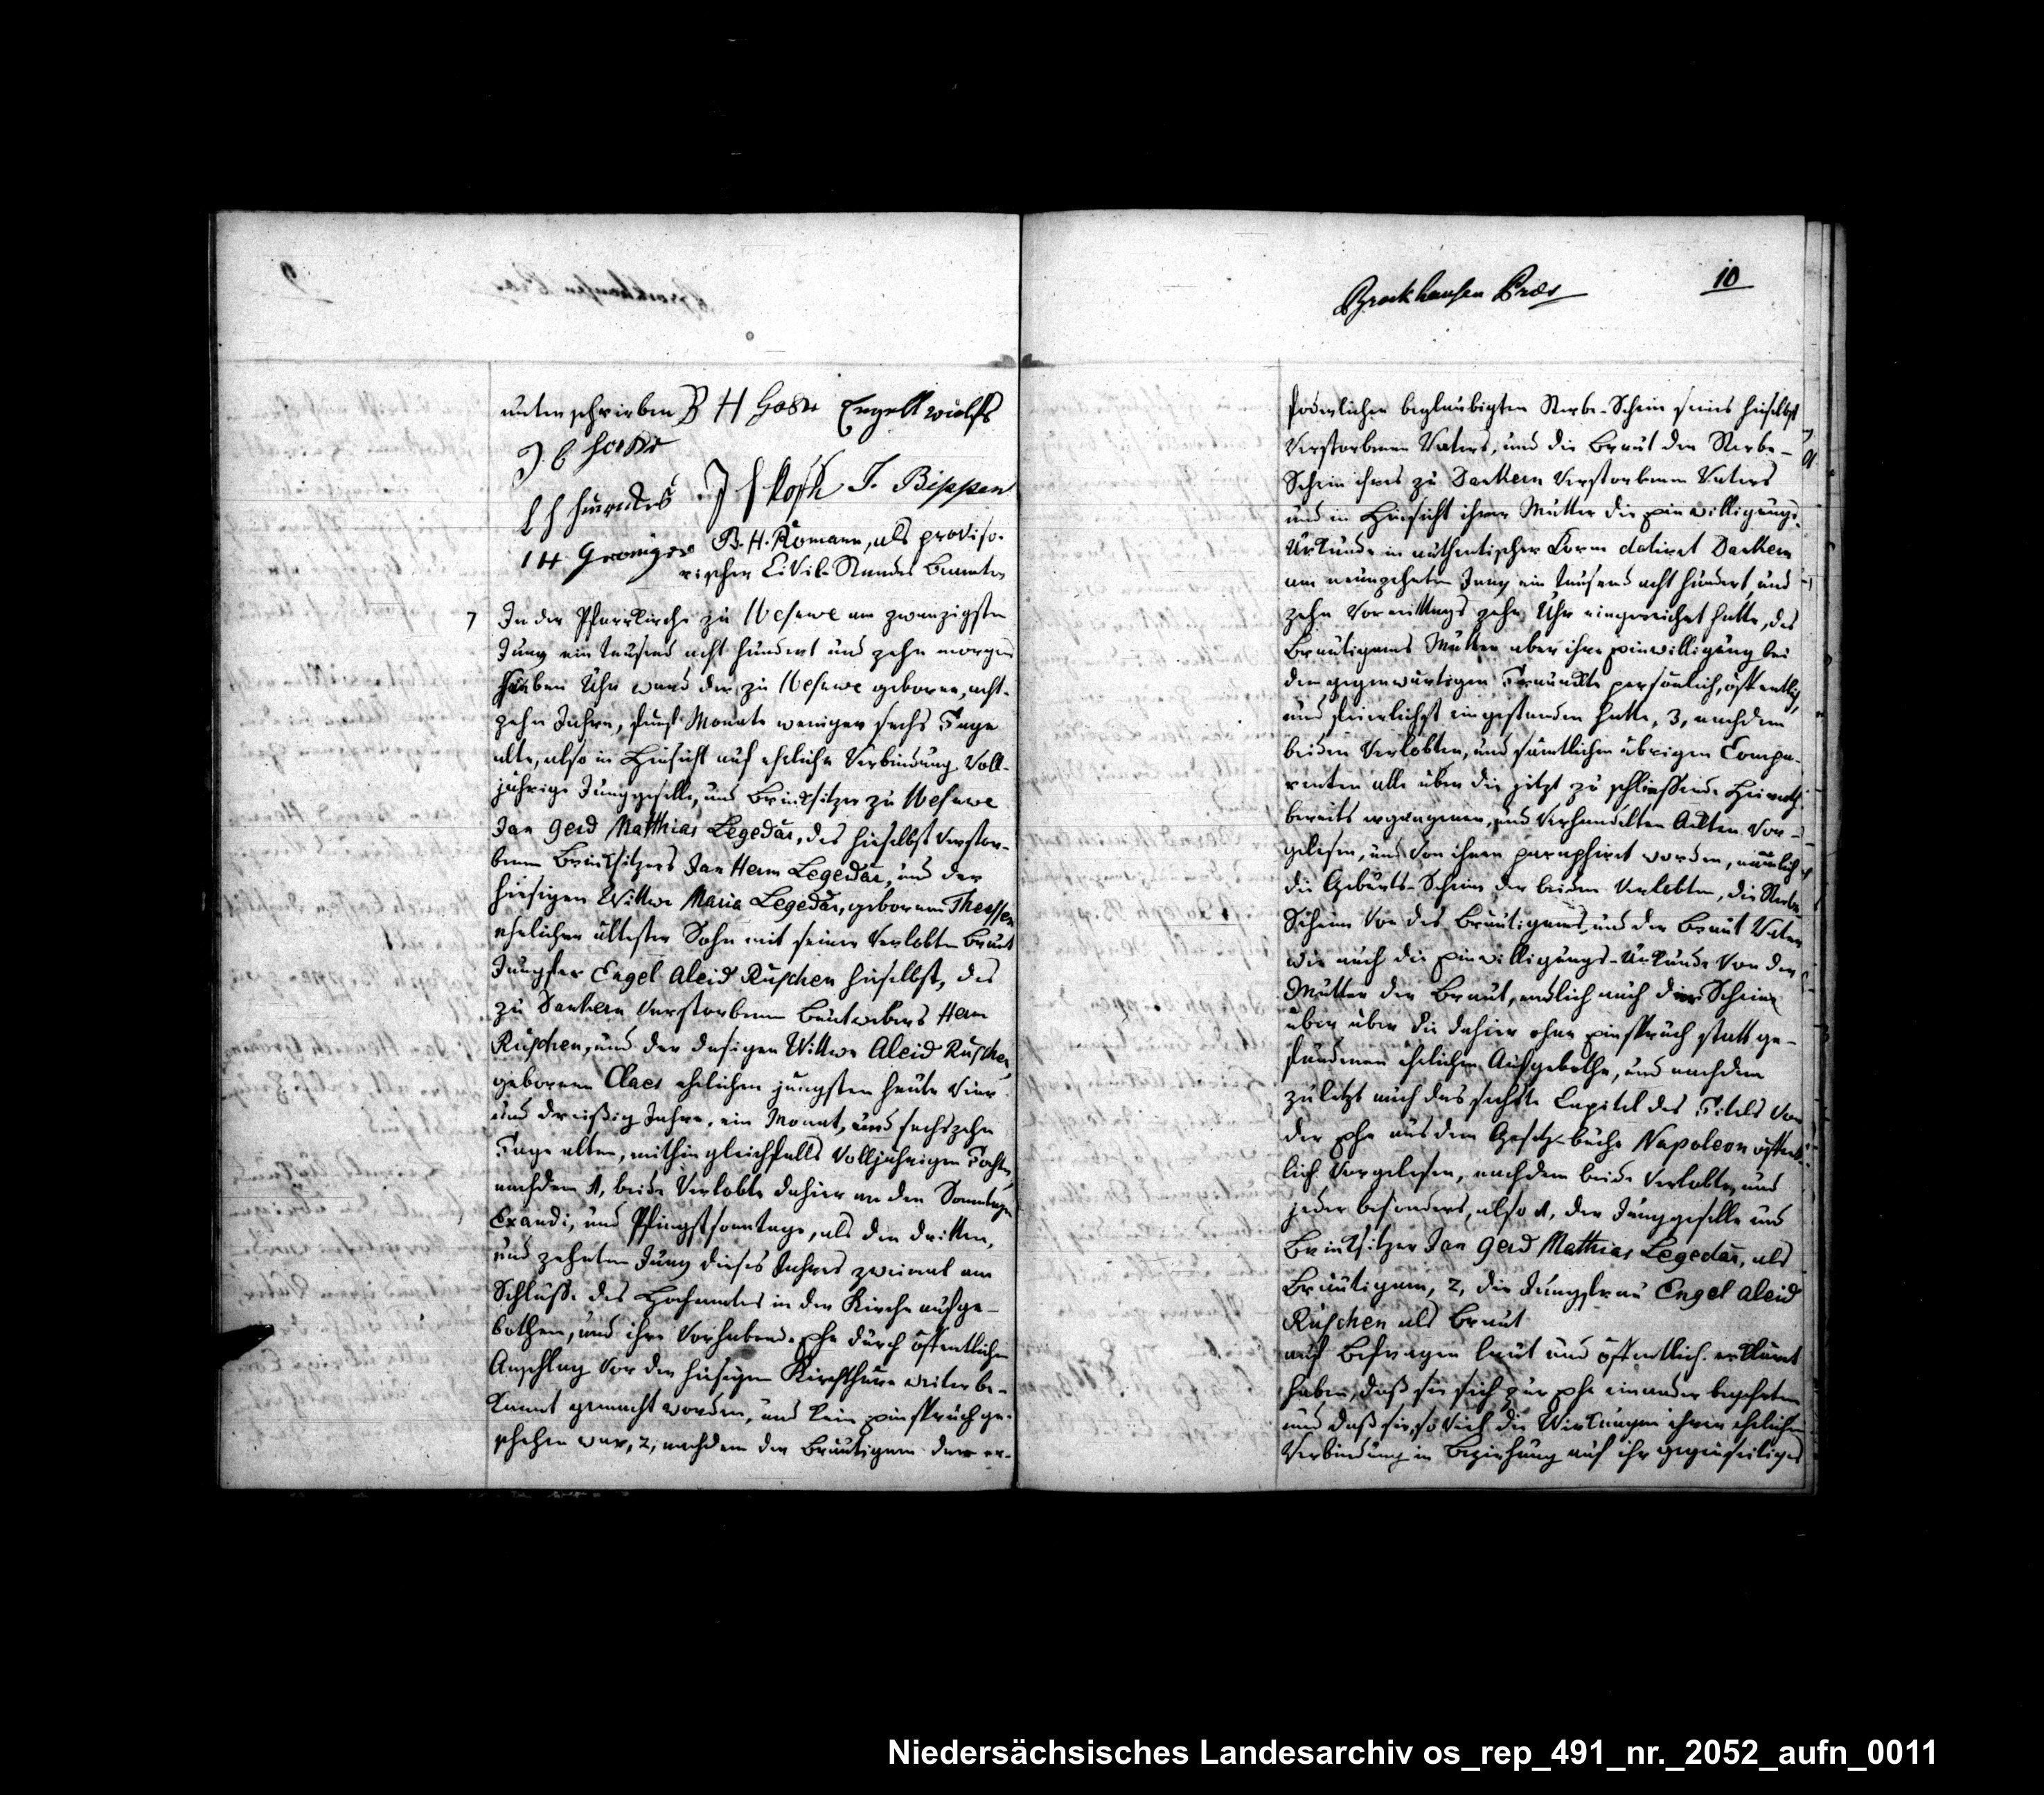 unterschrieben B H Engell wulfs
J. Bippen
B. H. Romann, als proviso-
rischer Civil-Standes Beamter
7 In der Pfarrkirche zu Wesuwe am zwanzigsten
Juny ein tausend acht hundert und zehn morgens
sieben Uhr ward der zu Wesuwe geborne, acht-
zehn Jahre, fünf Monate weniger sechs Tage
alte, also in Hinsicht auf eheliche Verbindung Voll-
jährige Junggeselle, und Brinksitzer zu Wesuwe
Jan Gerd Matthias Legedär, des hieselbst verstor-
benen Brinksitzers Jan Herm Legedär, und der
hiesigen Wittwe Maria Legedär, gebornen
ehelicher ältester Sohn mit seiner Verlobten Braut
Jungfer Engel Aleid Ruschen hieselbst, des
zu Dankern Verstorbenen Herm
Ruschen, und der dasigen Wittwe Aleid Ruschen
gebornen Claes ehelichen jüngsten heute Vier
und dreißig Jahre, ein Monat, und sechszehn
Tage alten, mithin gleichfalls Volljährigen Tochter
nachdem 1, beide Verlobte dahier an den Sonntagen
Exaudi, und Pfingstsonntage, als den dritten,
und zehnten Juny dieses Jahres zweimal am
Schlusse des Hochamtes in der Kirche aufge-
bothen, und ihre Vorhabende Ehe durch öffentlichen
Anschlag Vor der hiesigen Kirchthüre weiter be-
kannt gemacht worden, und kein Einspruch ge-
schehen war, 2, nachdem der Bräutigam den er-
Brockhausen Präs
10
foderlichen beglaubigten Sterbe-Schein seines hieselbst
Verstorbenen Vaters, und die Braut den Sterbe-
Schein ihres zu Dankern Verstorbenen Vaters
und in Hinsicht ihrer Mutter die Einwilligungs-
Urkunde in authentischer Form datiret Dankern
am neunzehnten Juny ein tausend acht hundert und
zehn Vormittags zehn Uhr eingereichet hatte, des
Bräutigams Mutter aber ihre Einwilligung bei
den gegenwärtigen persönlich, öffentlich,
und feierlichst eingestanden hatte, 3, nachdem
beiden Verlobten, und sämtlichen übrigen Compa-
renten alle über die jetzt zu schliessende Heirath
bereits ergangenen, und Verhandelten Akten Vor-
gelesen, und Von ihnen paraphiret worden, nämlich
die Geburts-Scheine der beiden Verlobten, die Sterbe-
Scheine Von des Bräutigams und der Braut Vater
wie auch die Einwilligungs-Urkunde Von der
Mutter der Braut, endlich auch die Scheine
über über die dahier ohne Einspruch statt ge-
fundenen ehelichen Aufgebothe, und nachdem
zuletzt auch das sechste Capitel des Titels Von
der Ehe aus dem Gesetz-buche Napoleon öffent-
lich Vorgelesen, nachdem beide Verlobte, und
jeder besonders, also 1, der Junggeselle und
Brinksitzer Jan Gerd Mathias Legedär, als
Bräutigam, 2, die Jungfrau Engel Aleid
Ruschen als Braut
auf Befragen laut und öffentlich erklärt
haben, daß sie sich zur Ehe einander begehrten
und daß sie, so Viel die Wirkungen ihrer ehelichen
Verbindung in Beziehung auf ihr gegenseitiges
Niedersächsisches Landesarchiv os_rep_491_nr._2052_aufn_0011